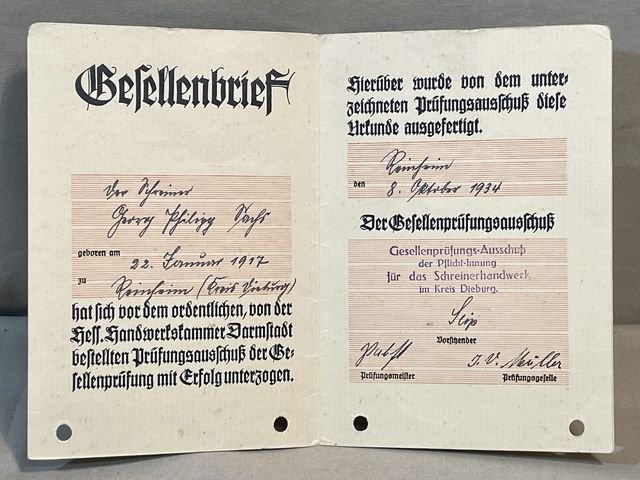 Gesellenbrief
Der Schreiner
Georg Philipp Sachs
geboren am
22. Januar 1917
zu
Reinheim (Kreis Dieburg)
hat sich vor dem ordentlichen, von der
Hess. Handwerkskammer Darmstadt
bestellten Prüfungsausschuß der Ge-
sellenprüfung mit Erfolg unterzogen.
Hierüber wurde von dem unter-
zeichneten Prüfungsausschuß diese
Urkunde ausgefertigt.
Reinheim
den 8. Oktober 1934
Der Gesellenprüfungsausschuß
Gesellenprüfungs-Ausschuß
der Pflicht-Innung
für das Schreinerhandwerk
im Kreis Dieburg.
Vorsitzender
Pabst J. V. Müller
Prüfungsmeister Prüfungsgeselle